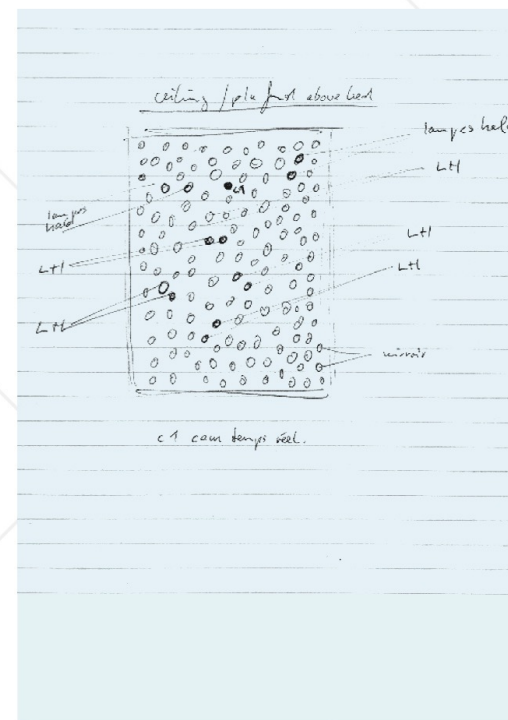 ceiling / plafond above bed
lampes halo
L+l
c1
lampes
halo
L+l
L+l
L+l
L+l
mirroir
c1 cam temps réel.